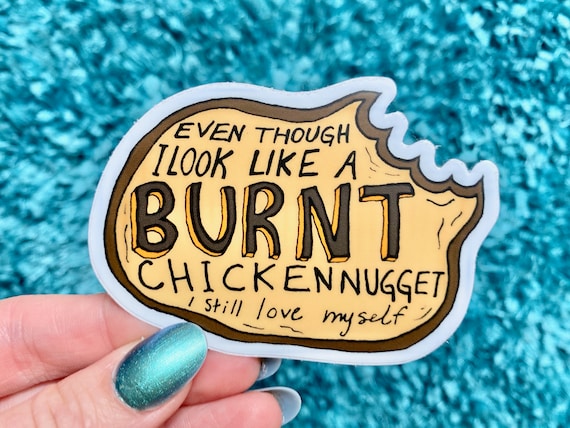 EVEN THOUGH
I LOOK LIKE A
BURNT
CHICKEN NUGGET
I still love myself